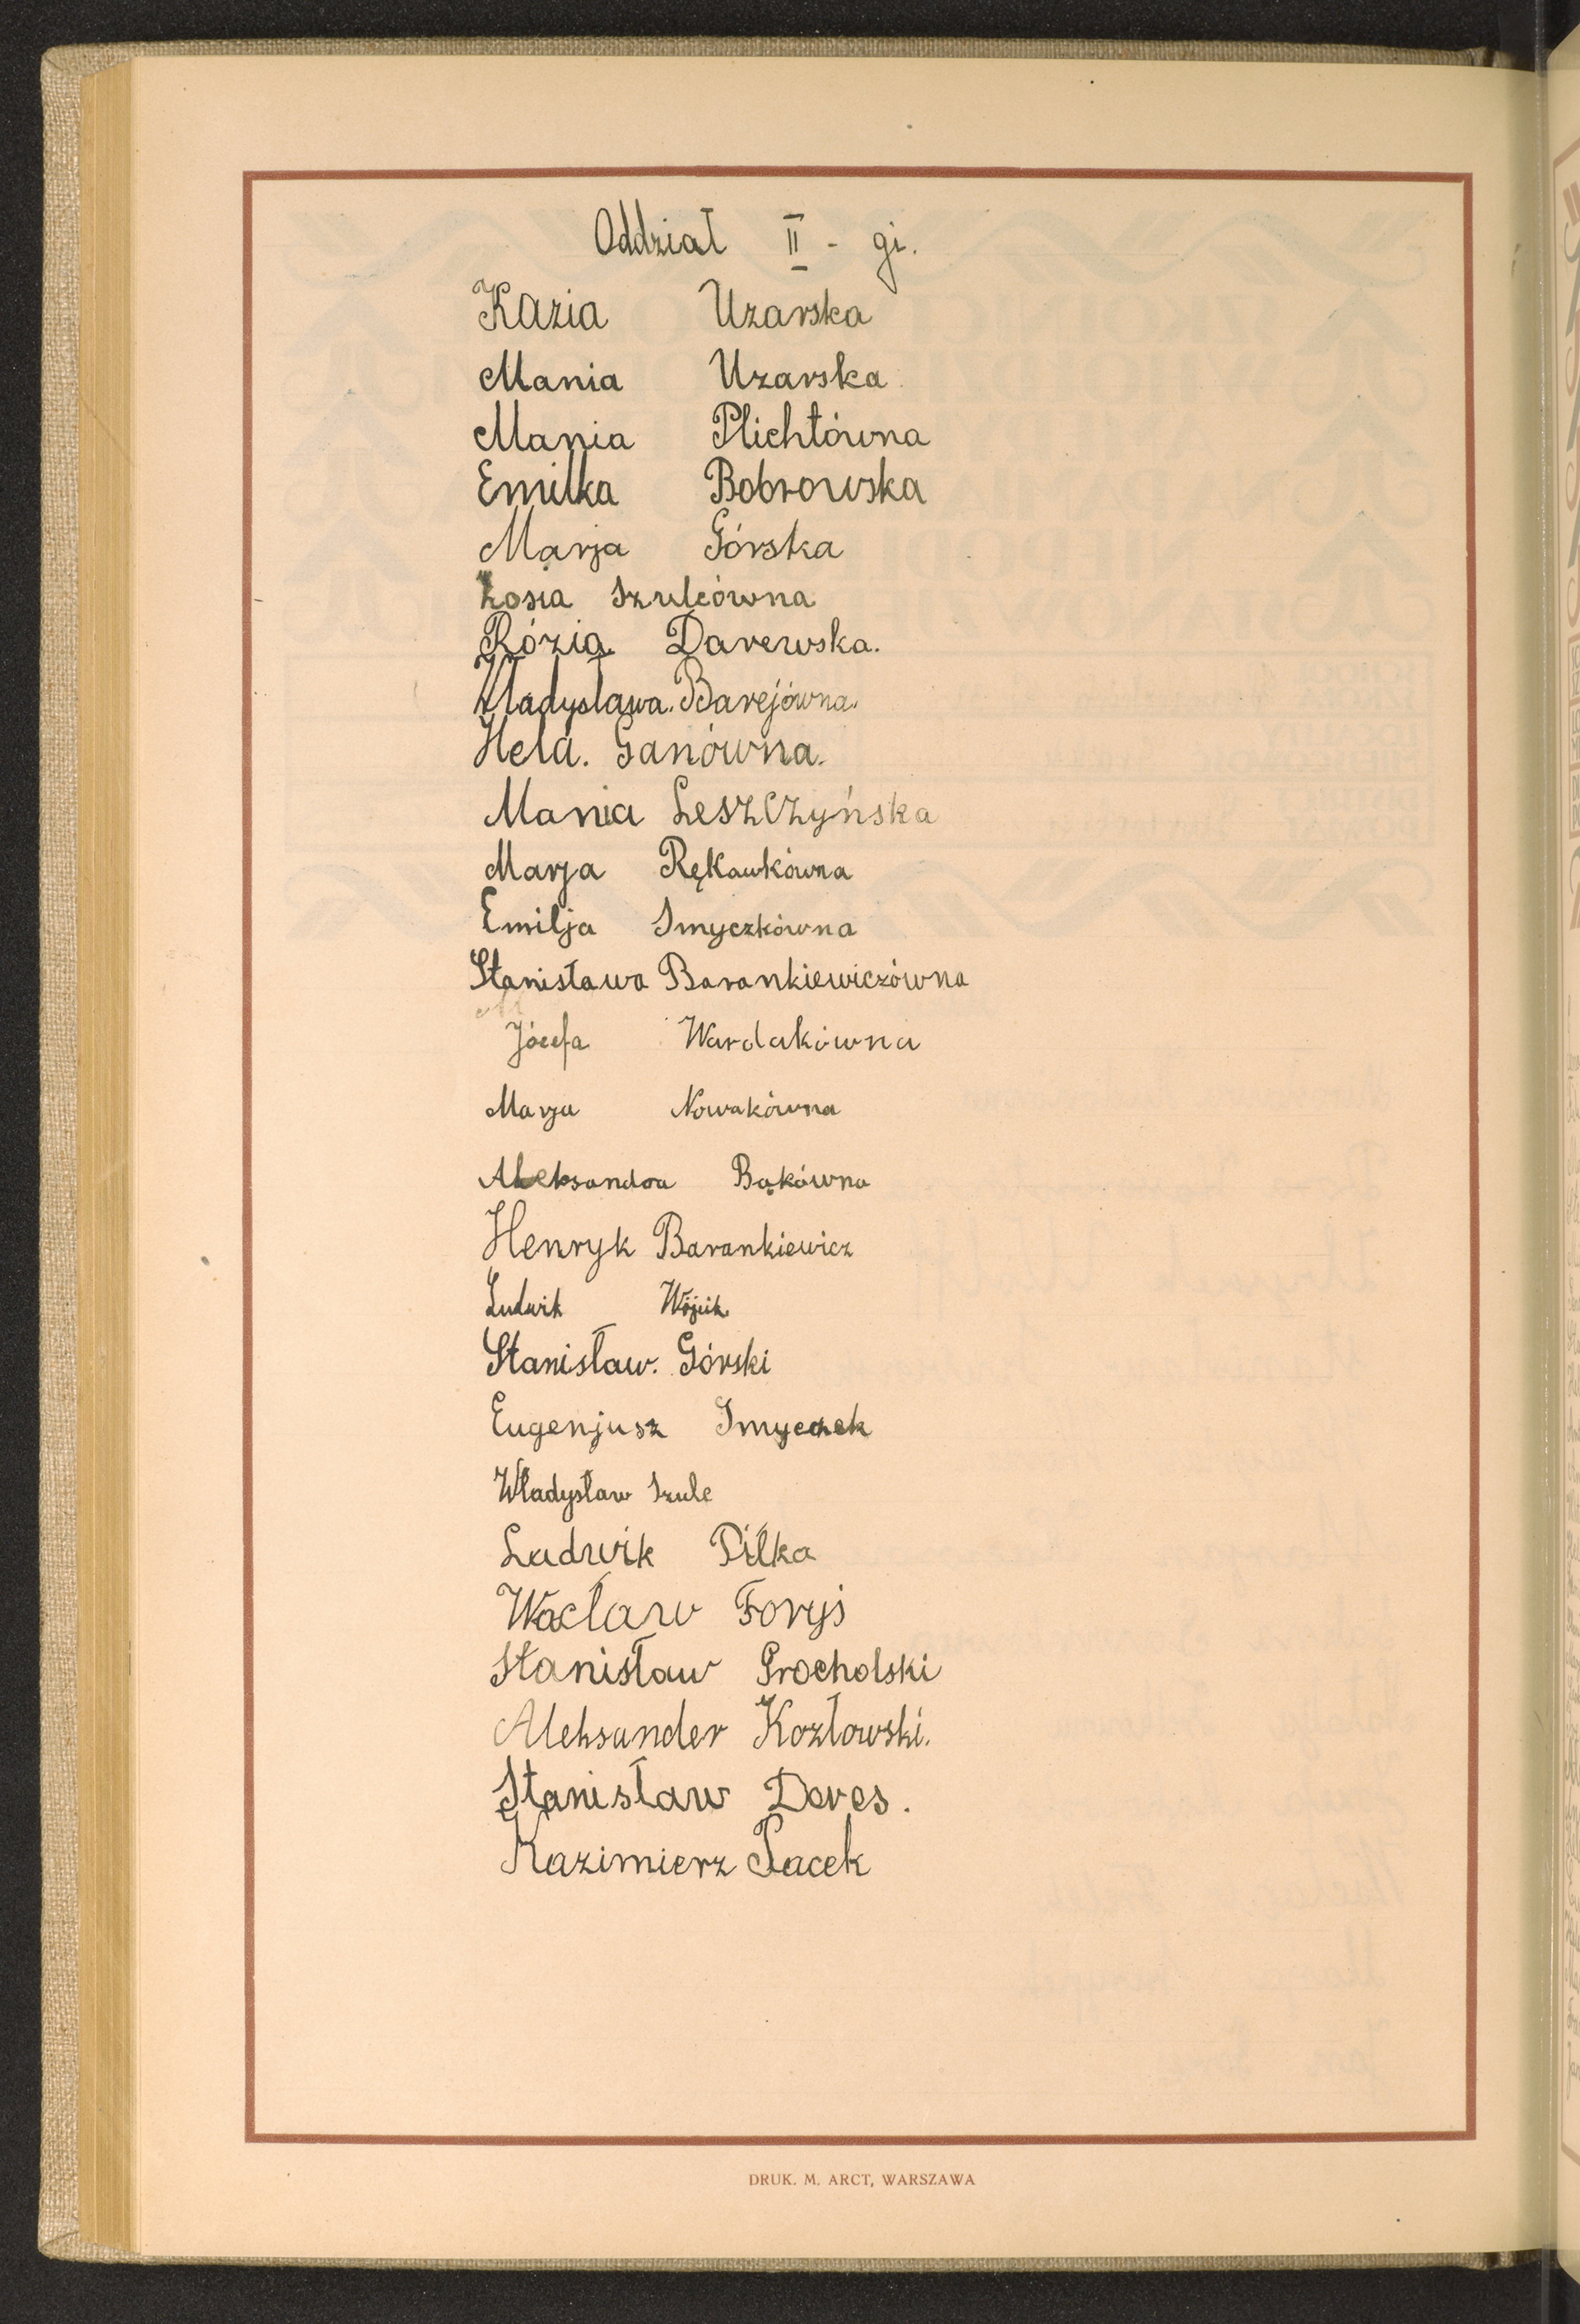 Oddział II - gi.
Kazia Uzarska
Mania Uzarska
Mania Plichtówna
Emilka Bobrowska
Marja Górska
Zosia Szulcówna
Rózia Darewska.
Władysława. Barejówna.
Hela. Ganówna.
Mania Leszczyńska
Marja Rękawkówna
Emilja Smyczkówna
Stanisława Barankiewiczówna
Józefa Wardakówna
Marja Nowakówna
Aleksandra Bąkówna
Henryk Barankiewicz
Ludwik Wójcik
Stanisław. Górski
Eugenjusz Smyczek
Władysław Szulc
Ludwik Piłka
Wacław Foryś
Stanisław Grocholski
Aleksander Kozłowski.
Stanisław Deres.
Kazimierz Pacek
DRUK. M. ARCT, WARSZAWA